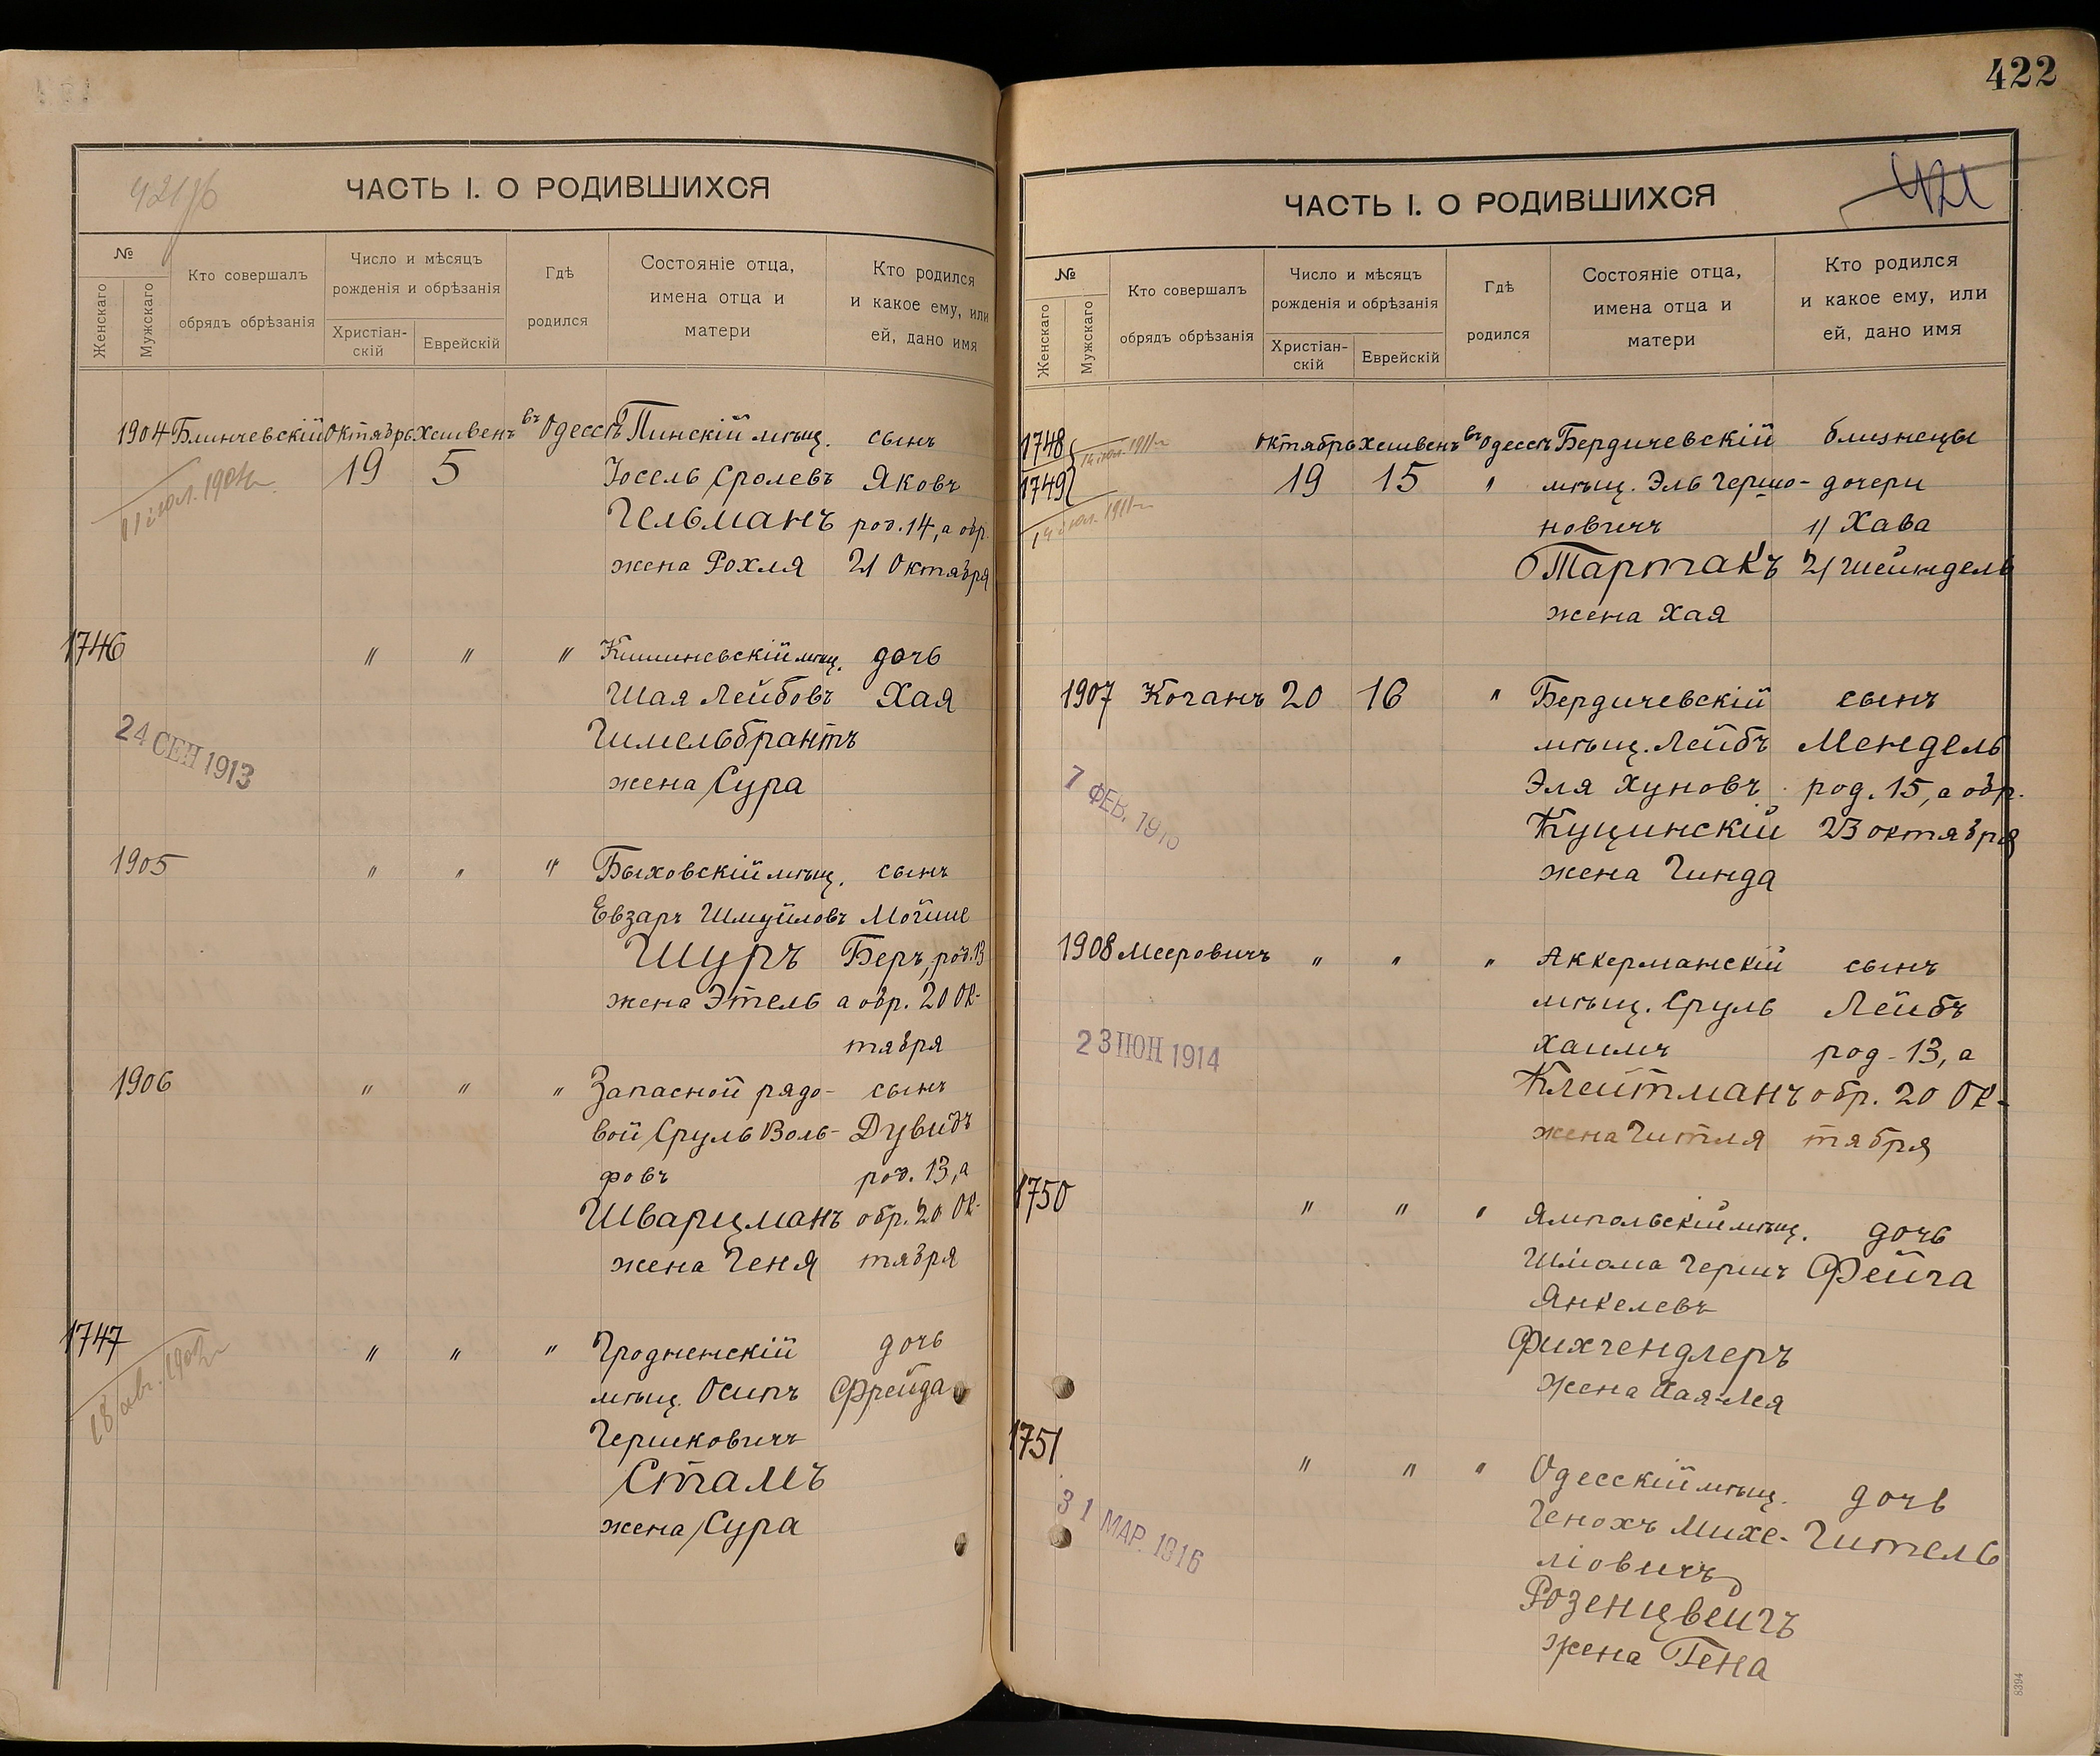 422
421/б
ЧАСТЬ I. О РОДИВШИХСЯ
№
Женскаго
Мужскаго
Кто совершалъ
обрядъ обрѣзанія
Число и мѣсяцъ
рожденія и обрѣзанія
Христіан-
скій
Еврейскій
Гдѣ
родился
Состояніе отца,
имена отца и
матери
Кто родился
и какое ему, или
ей, дано имя
1904 Блинчевскій Октябрь Хешвенъ въ Одессѣ Пинскій мѣщ. сынъ
19 5 Іосель Сролевъ Яковъ
Гельманъ род. 14, а обр.
жена Рохля 21 Октября
1746 " " " Кишиневскій мѣщ. дочь
Шая Лейбовъ Хая
Гимельбрантъ
жена Сура
24 СЕН 1913
1905 " " " Быховскій мѣщ. сынъ
Евзаръ Шмуйловъ Мойше
Шуръ Беръ, род. 13
жена Этель а обр. 20 Ок-
тября
1906 " " " Запасной рядо- сынъ
вой Сруль Воль- Дувидъ
фовъ род. 13, а
Шварцманъ обр. 20 Ок-
жена Геня тября
1747 " " " Гродненскій дочь
мѣщ. Осипъ Фрейда
Гершковичъ
Стамъ
жена Сура
ЧАСТЬ I. О РОДИВШИХСЯ
421
№
Женскаго
Мужскаго
Кто совершалъ
обрядъ обрѣзанія
Число и мѣсяцъ
рожденія и обрѣзанія
Христіан-
скій
Еврейскій
Гдѣ
родился
Состояніе отца,
имена отца и
матери
Кто родился
и какое ему, или
ей, дано имя
1748 Октябрь Хешвенъ въ Одессѣ Бердичевскій близнецы
1749 19 15 " мѣщ. Эль Гершо- дочери
новичъ 1/ Хава
Тартакъ 2/ Шейндель
жена Хая
1907 Коганъ 20 16 " Бердичевскій сынъ
мѣщ. Лейбъ Мендель
Эля Хуновъ род. 15, а обр.
Куцинскій 23 октября
жена Гинда
7 ФЕВ. 1916
1908 Мееровичъ " " " Аккерманскій сынъ
мѣщ. Сруль Лейбъ
Хаимъ род. 13, а
Клейтманъ обр. 20 Ок-
жена Гитля тября
23 ІЮН 1914
1750 " " " Ямпольскій мѣщ. дочь
Шліома Гершъ Фейга
Янкелевъ
Фихгендлеръ
жена Хая-Лея
1751 " " " Одесскій мѣщ. дочь
Генохъ Михе- Гитель
ліовичъ
Розенцвейгъ
жена Гена
31 МАР. 1916
8394